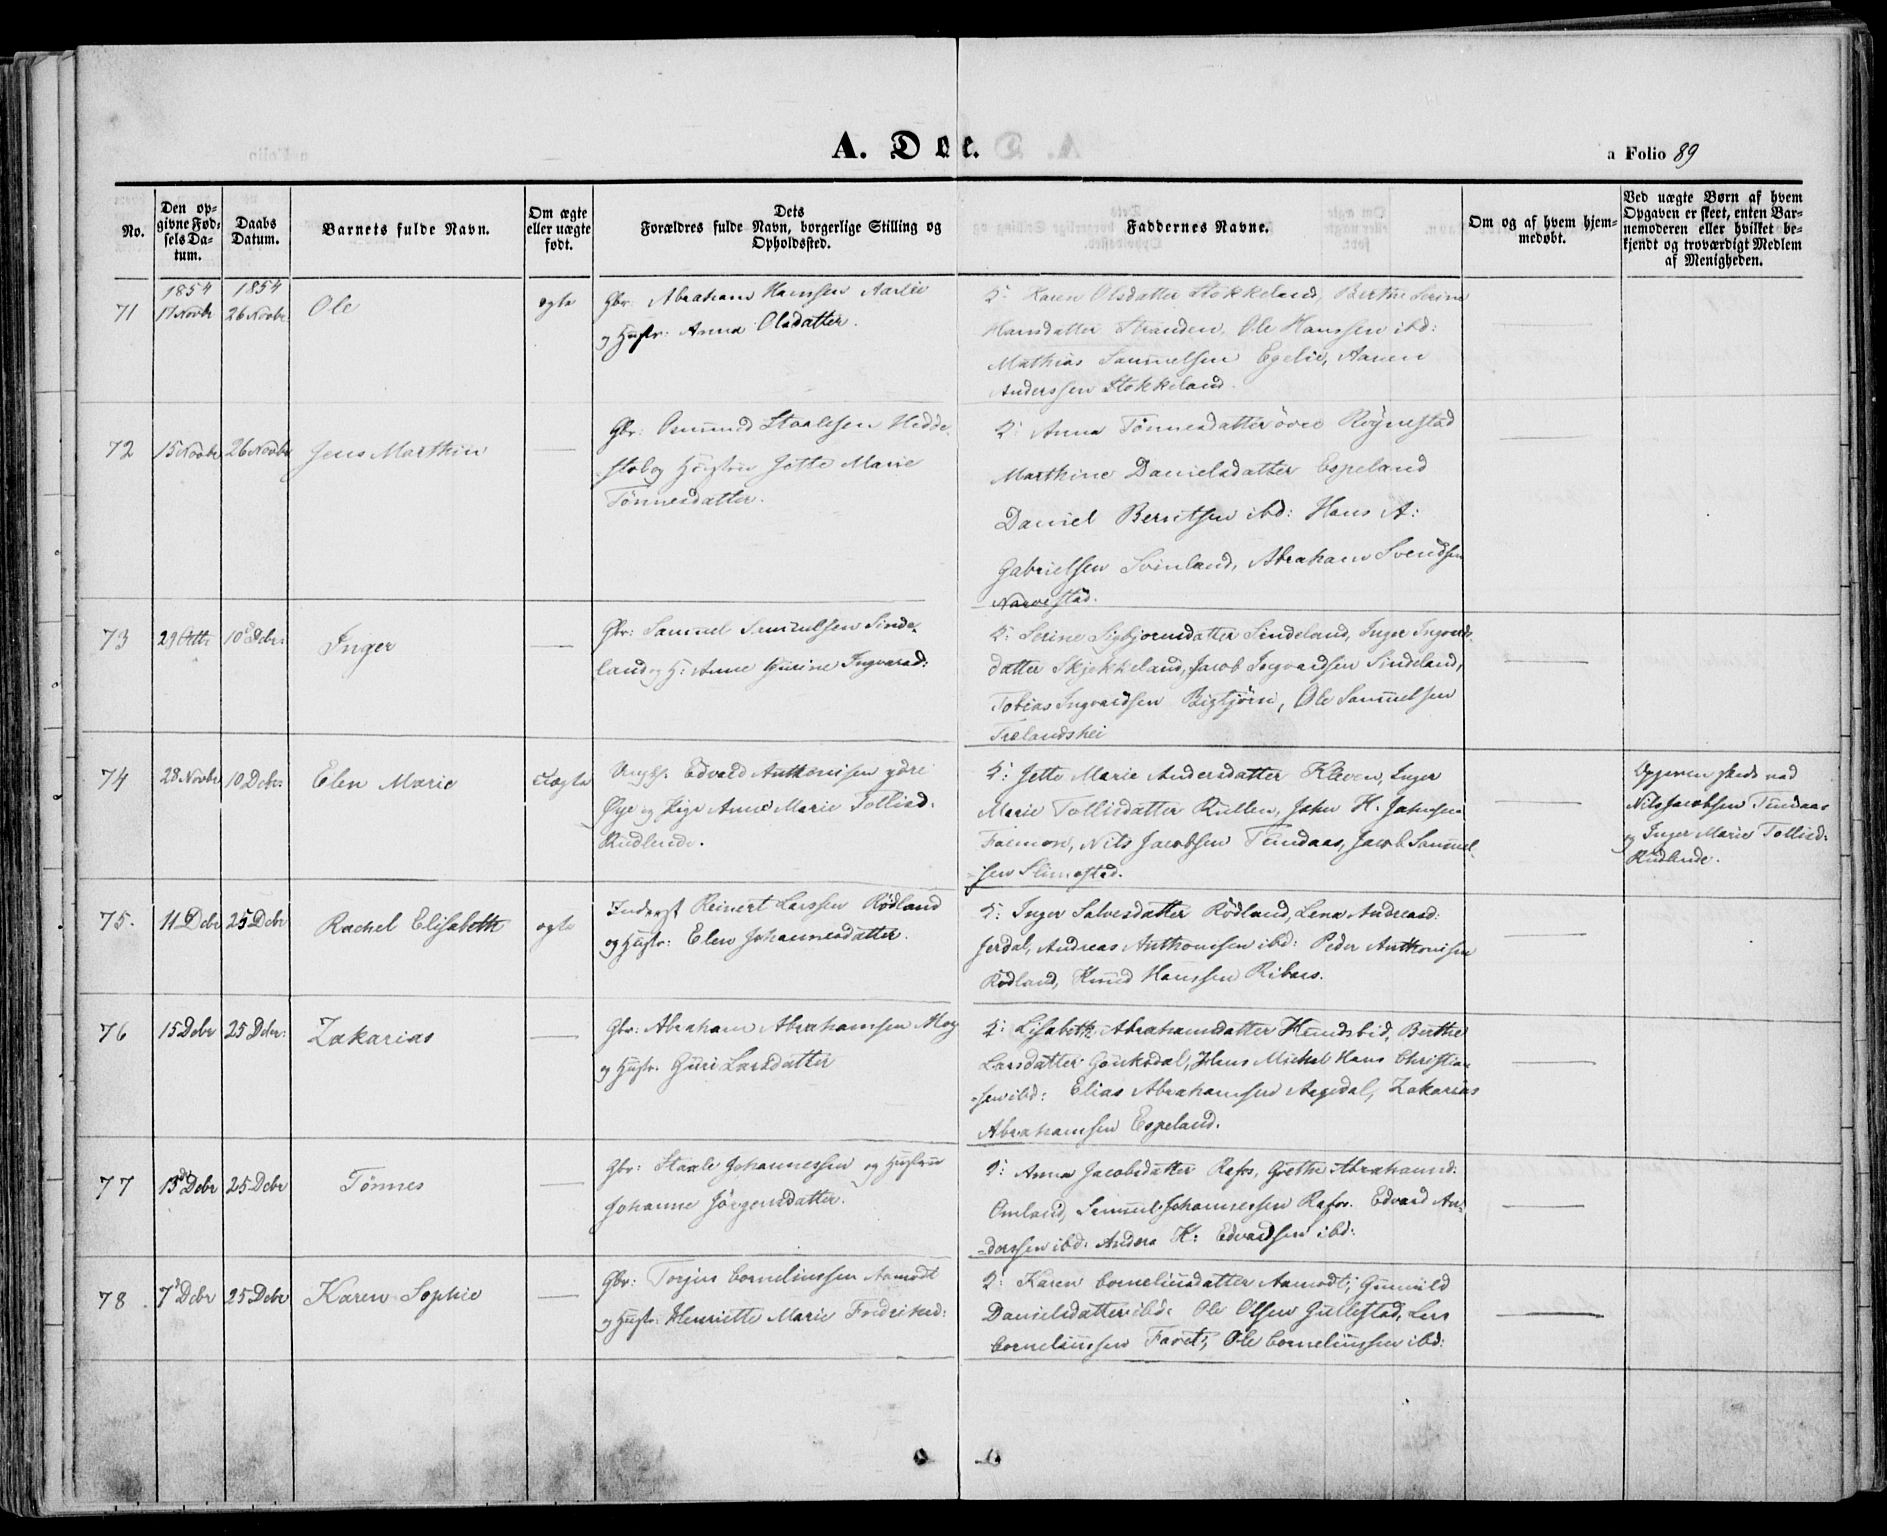 A. Døe.
a Folio 89
No.
Den op-
givne Fød-
sels Da-
tum.
Daabs
Datum.
Barnets fulde Navn.
Om ægte
eller uægte
født.
Dets
Forældres fulde Navn, borgerlige Stilling og
Opholdssted.
Faddernes Navne.
Om og af hvem hjem-
medøbt.
Ved uægte Børn af hvem
Opgaven er skeet, enten Bar-
nemoderen eller hvilket be-
kjendt og troværdigt Medlem
af Menigheden.
71
1854
17 Novbr
1854
26 Novbr.
Ole
ægte
Gbr: Abraham Hanssen
og Hustr: Anna Olsdatter.
F: Karen Olsdatter Stokkeland, Berthe Serine
Hansdatter Stranden, Ole Hanssen ibd:
Mathias Samuelsen Egelie, Aanen
Anderssen Stokkeland.
72
15 Novbr
26 Novbr
Jens Marthin
Gbr: Osmund Staalesen Hedde-
stöl og Hustru Jette Marie
Tönnesdatter.
F: Anna Tönnesdatter övre Röynestad
Marthine Danielsdatter Espeland
Daniel Berntsen ibd: Hans A:
Gabrielsen Svinland, Abraham Svendsen
Narvestad.
73
29 Octbr
10 Debr:
Inger
Gbr: Samuel Samuelsen Sinde-
land og H: Anne Gurine Ingvarsd:
F: Serine Sigbjornsdatter Sindeland, Inger Ingvards-
datter Skjekkeland, Jacob Ingvardsen Sindeland,
Tobias Ingvardsen Bigtjörn, Ole Samuelsen
Trælandshei
74
28 Novbr
10 Debr:
Elen Marie
uægte
Ungk. Edvard Anthonisen ydre
Øye og Pige Anne Marie Tollisd:
Rudlende.
F: Jette Marie Andersdatter Kleven, Inger
Marie Tollisdatter Rullen, John H. Johnsen
Foemon, Nils Jacobsen Tundaas, Jacob Samuel-
sen Slimestad.
Opgaven skede ved
Nils Jacobsen Tundaas
og Inger Marie Tollisd:
Rudlende.
75.
11 Debr
25 Debr
Rachel Elisabeth
ægte
Inderst Reinert Larssen Rödland
og Hustr: Elen Johannesdatter.
F: Inger Salvesdatter Rödland, Lena Andreasd:
Jerdal, Andreas Anthonisen ibd: Peder Anthonisen
Rödland, Knud Hanssen Ribaas.
76
15 Debr
25 Debr:
Zakarias
Gbr: Abraham Abrahamsen Moy
og Hustr. Guri Larsdatter
F: Lisabeth Abrahamsdatter Hundsbid, Berthe
Larsdatter Gauksdal, Hans Michel Hans Christian-
sen ibd: Elias Abrahamsen Aagedal, Zakarias
Abrahamsen Espeland.
77
13 Debr
25 Debr
Tönnes
Gbr: Staale Johannessen og Hustrue
Johanne Jörgensdatter.
F: Anna Jacobsdatter Rafos, Grethe Abrahamsd:
Omland, Samuel Johannessen Rafos. Edvard An-
derssen ibd. Anders K: Edvardsen ibd:
78.
7 Debr
25 Debr
Karen Sophie
Gbr: Torjus Corneliussen Aamodt
og Hustr: Henriette Marie Fredriksd:
F: Karen Corneliusdatter Aamodt, Gunvild
Danielsdatter ibd: Ole Olsen Gullestad, Lars
Corneliussen Faret, Ole Corneliussen ibd: